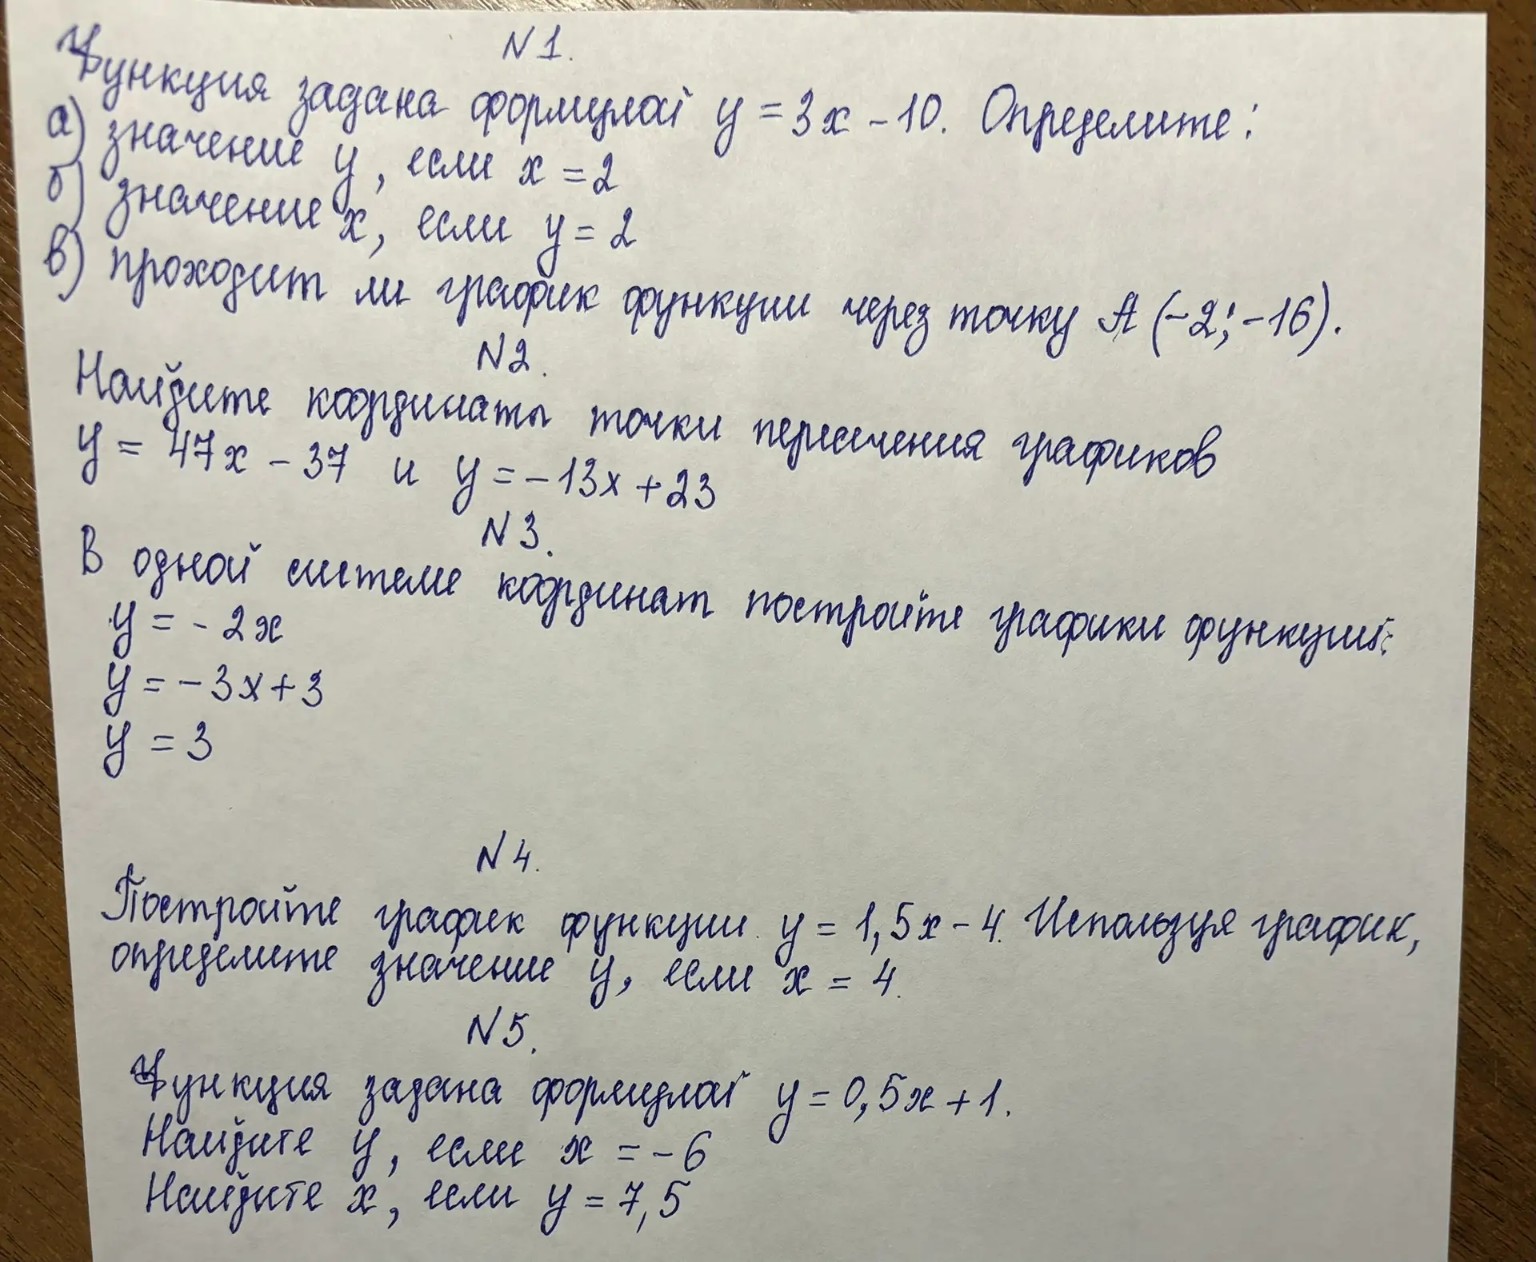 N1.
Функция задана формулой y = 3x - 10. Определите:
а) значение y, если x = 2
б) значение x, если y = 2
в) проходит ли график функции через точку A (-2; -16).
N2.
Найдите координаты точки пересечения графиков
y = 47x - 37 и y = -13x + 23
N3.
В одной системе координат постройте графики функций:
y = - 2x
y = - 3x + 3
y = 3
N4.
Постройте график функции y = 1,5x - 4. Используя график,
определите значение y, если x = 4.
N5.
Функция задана формулой y = 0,5x + 1.
Найдите y, если x = -6
Найдите x, если y = 7,5